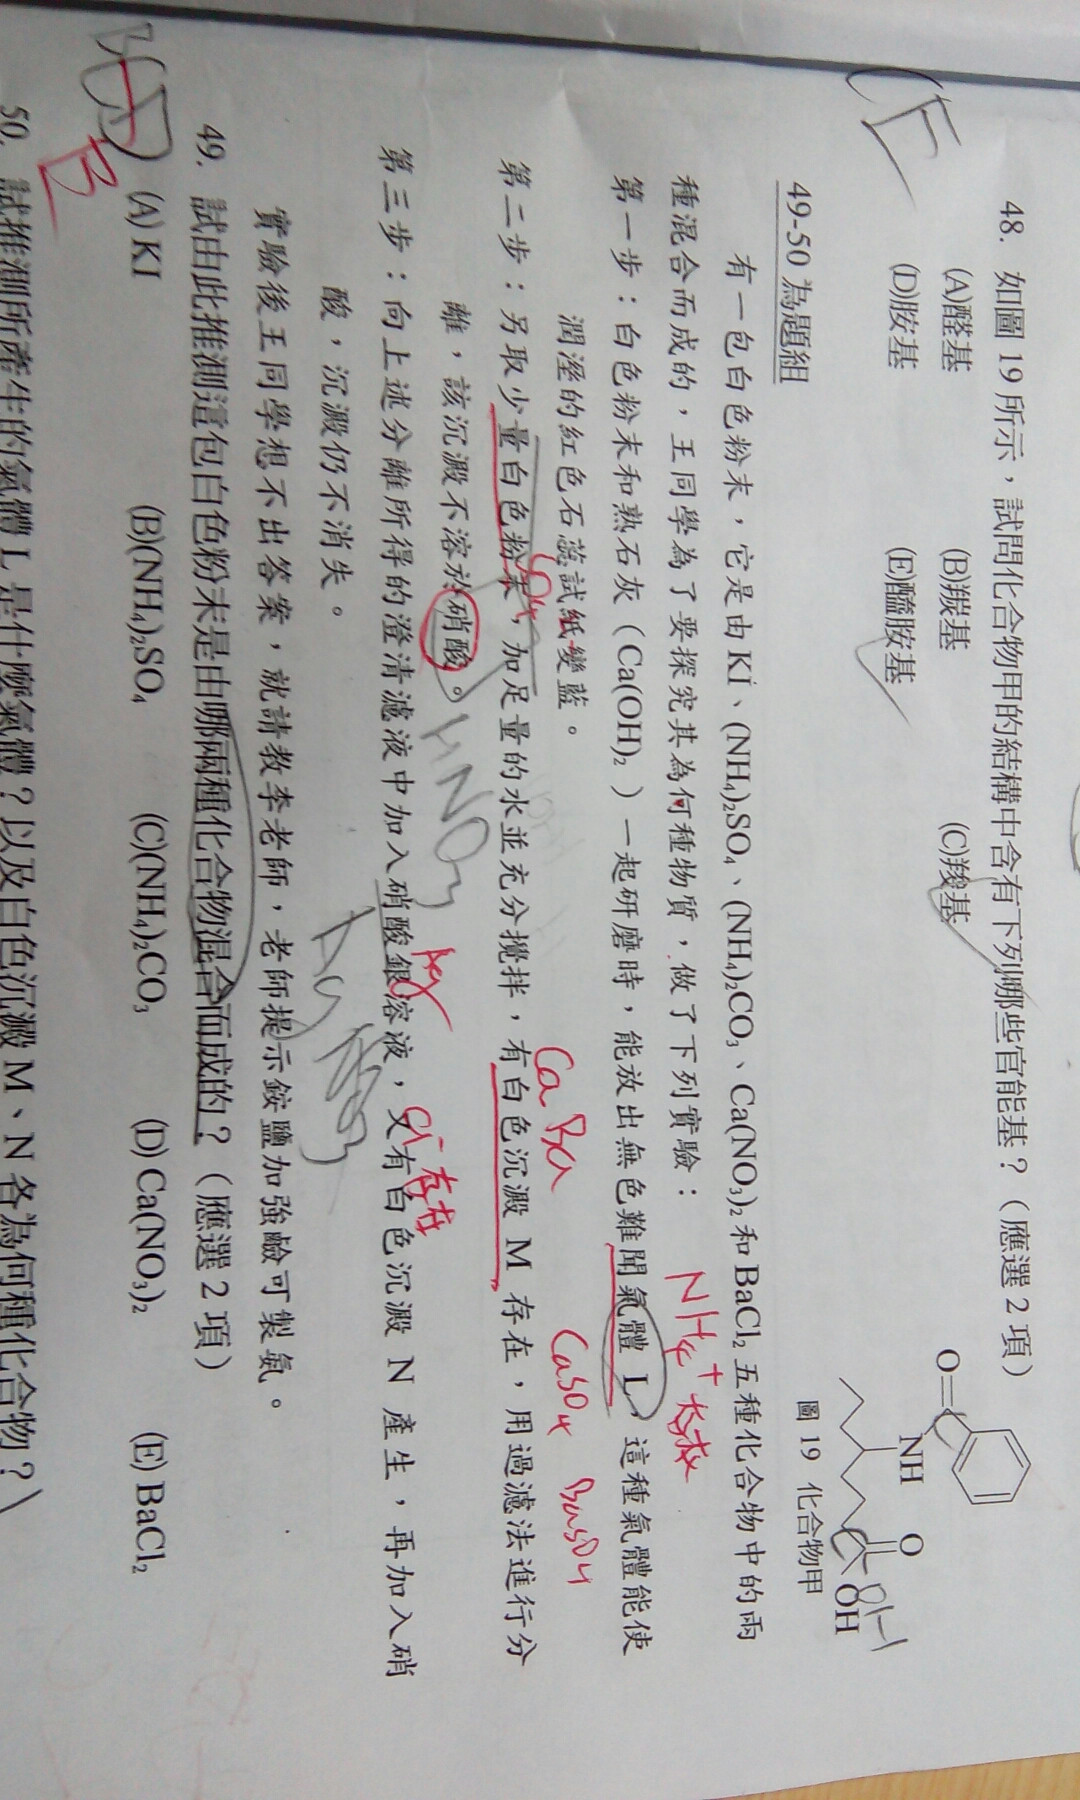 48. 如圖 19 所示，試問化合物甲的結構中含有下列哪些官能基？（應選 2 項）
(A)醛基 (B)羰基 (C)羧基
(D)胺基 (E)醯胺基
O
NH
O
OH
圖 19 化合物甲
CE
49-50 為題組
有一包白色粉末，它是由 KI、(NH₄)₂SO₄、(NH₄)₂CO₃、Ca(NO₃)₂ 和 BaCl₂ 五種化合物中的兩
種混合而成的，王同學為了要探究其為何種物質，做了下列實驗：
NH₄⁺
第一步：白色粉末和熟石灰（Ca(OH)₂）一起研磨時，能放出無色難聞氣體 L，這種氣體能使
潤溼的紅色石蕊試紙變藍。
SO₄
Ca Ba
CaSO₄ BaSO₄
第二步：另取少量白色粉末，加足量的水並充分攪拌，有白色沉澱 M 存在，用過濾法進行分
離，該沉澱不溶於硝酸。
HNO₃
Ag
Cl⁻存在
第三步：向上述分離所得的澄清濾液中加入硝酸銀溶液，又有白色沉澱 N 產生，再加入硝
酸，沉澱仍不消失。
實驗後王同學想不出答案，就請教李老師，老師提示銨鹽加強鹼可製氨。
49. 試由此推測這包白色粉末是由哪兩種化合物混合而成的？（應選 2 項）
(A) KI (B)(NH₄)₂SO₄ (C)(NH₄)₂CO₃ (D) Ca(NO₃)₂ (E) BaCl₂
B
50. 試推測所產生的氣體 L 是什麼氣體？以及白色沉澱 M、N 各為何種化合物？